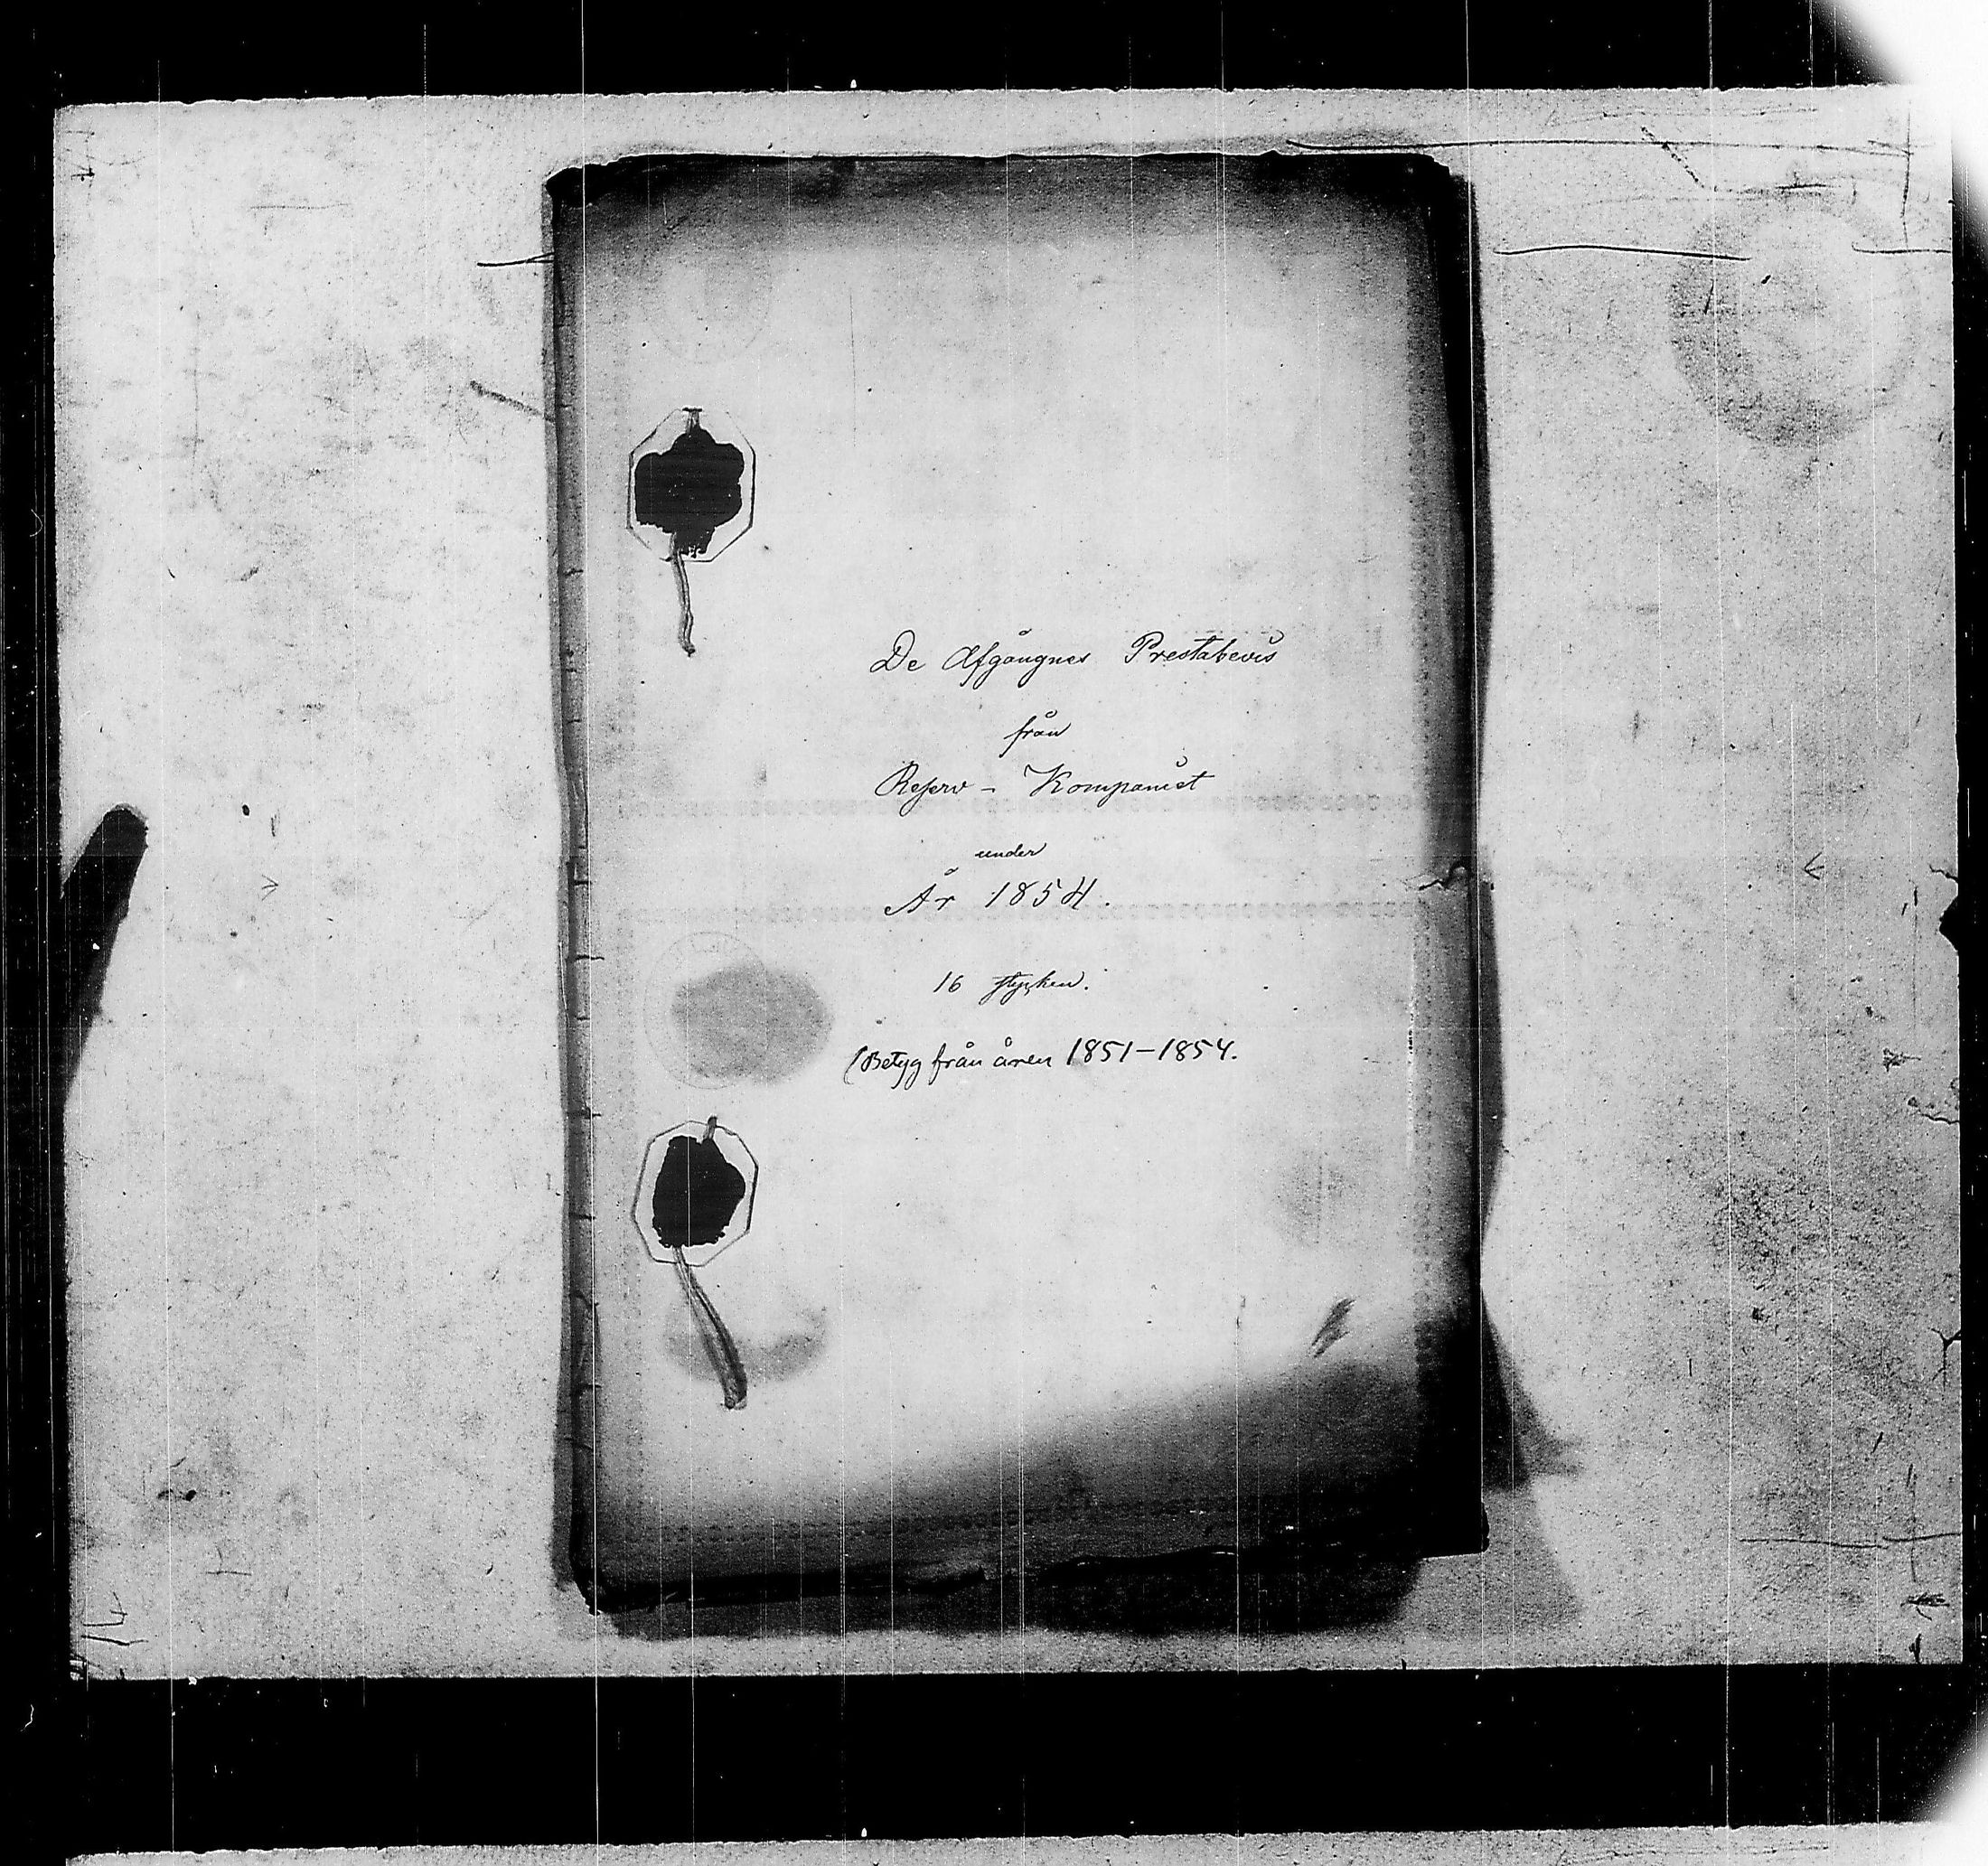 De Afgångnes Prestabevis
från
Reserv - Kompaniet
under
År 1854.
16 stycken.
(Betyg från åren 1851-1854.